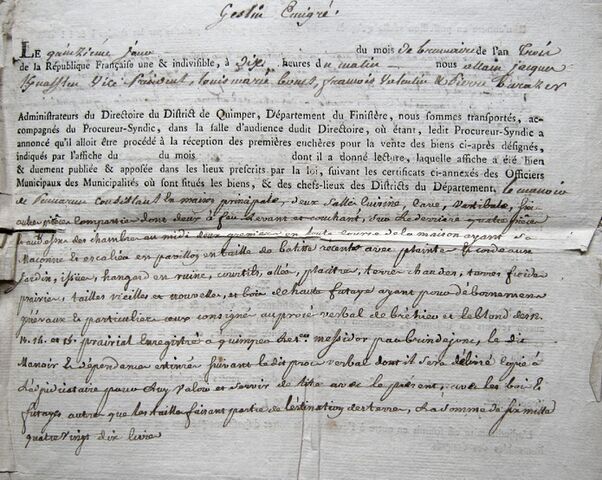 Gestin Emigré.
LE quinzieme jour du mois de brumaire de l'an trois
de la République Française une & indivisible, à dix heures du matin nous allain jacques
Vice Président, louis marie françois Valentin & Pierre
Administrateurs du Directoire du District de Quimper, Département du Finistère, nous sommes transportés, ac-
compagnés du Procureur-Syndic, dans la salle d'audience dudit Directoire, où étant, ledit Procureur-Syndic a
annoncé qu'il alloit être procédé à la réception des premieres enchères pour la vente des biens ci-après désignés,
indiqués par l'affiche du du mois dont il a donné lecture, laquelle affiche a été bien
& duement publiée & apposée dans les lieux prescrits par la loi, suivant les certificats ci-annexés des Officiers
Municipaux des Municipalités où sont situés les biens, & des chefs-lieux des Districts du Département, le manoir
de consistant en maison principale, deux Salle Cuisine, Cave, Vestibule,
autre dont deux à feu levant et couchant, Sur le derriere quatre
des chambres au midi en toute de la maison ayant
et escalier en pavillon en taille de batisse recente avec
jardin, issües, hangard en ruine, courtils, allée, placitre, terre chaudes, terres froides
prairies, tailles vieilles et nouvelles, et bois de haute futaye ayant pour débornement
& particulier consigné au procé verbal de bréhier et le blond des
14. 15. prairial Enregistré a quimper le messidor par brindejonc, le dit
Manoir & dépendance entiere suivant ledit procé verbal dont il sera délivré copie à
pour luy Valoir et servir de titre avec le present, avec les bois &
futayes, autre que les taillis faisant partie de l'estimation des terres, à la somme de six mille
quatre vingt dix livres